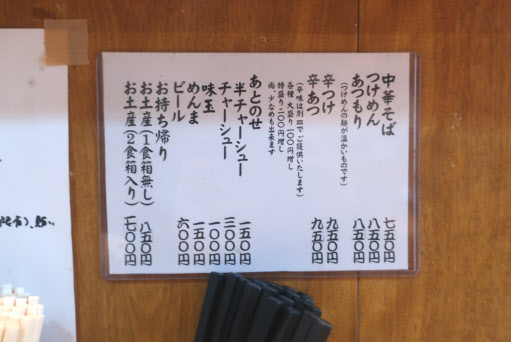 中華そば 七五〇円
つけめん 八五〇円
あつもり 八五〇円
(つけめんの麺が温かいものです)
辛つけ 九五〇円
辛あつ 九五〇円
(辛味は別皿でご提供いたします)
各種 大盛り一〇〇円増し
特盛り二〇〇円増し
尚、少なめも出来ます
あとのせ
半チャーシュー 一五〇円
チャーシュー 三〇〇円
味玉 一〇〇円
めんま 一五〇円
ビール 六〇〇円
お持ち帰り
お土産(1食箱無し) 八五〇円
お土産(2食箱入り) 一七〇〇円